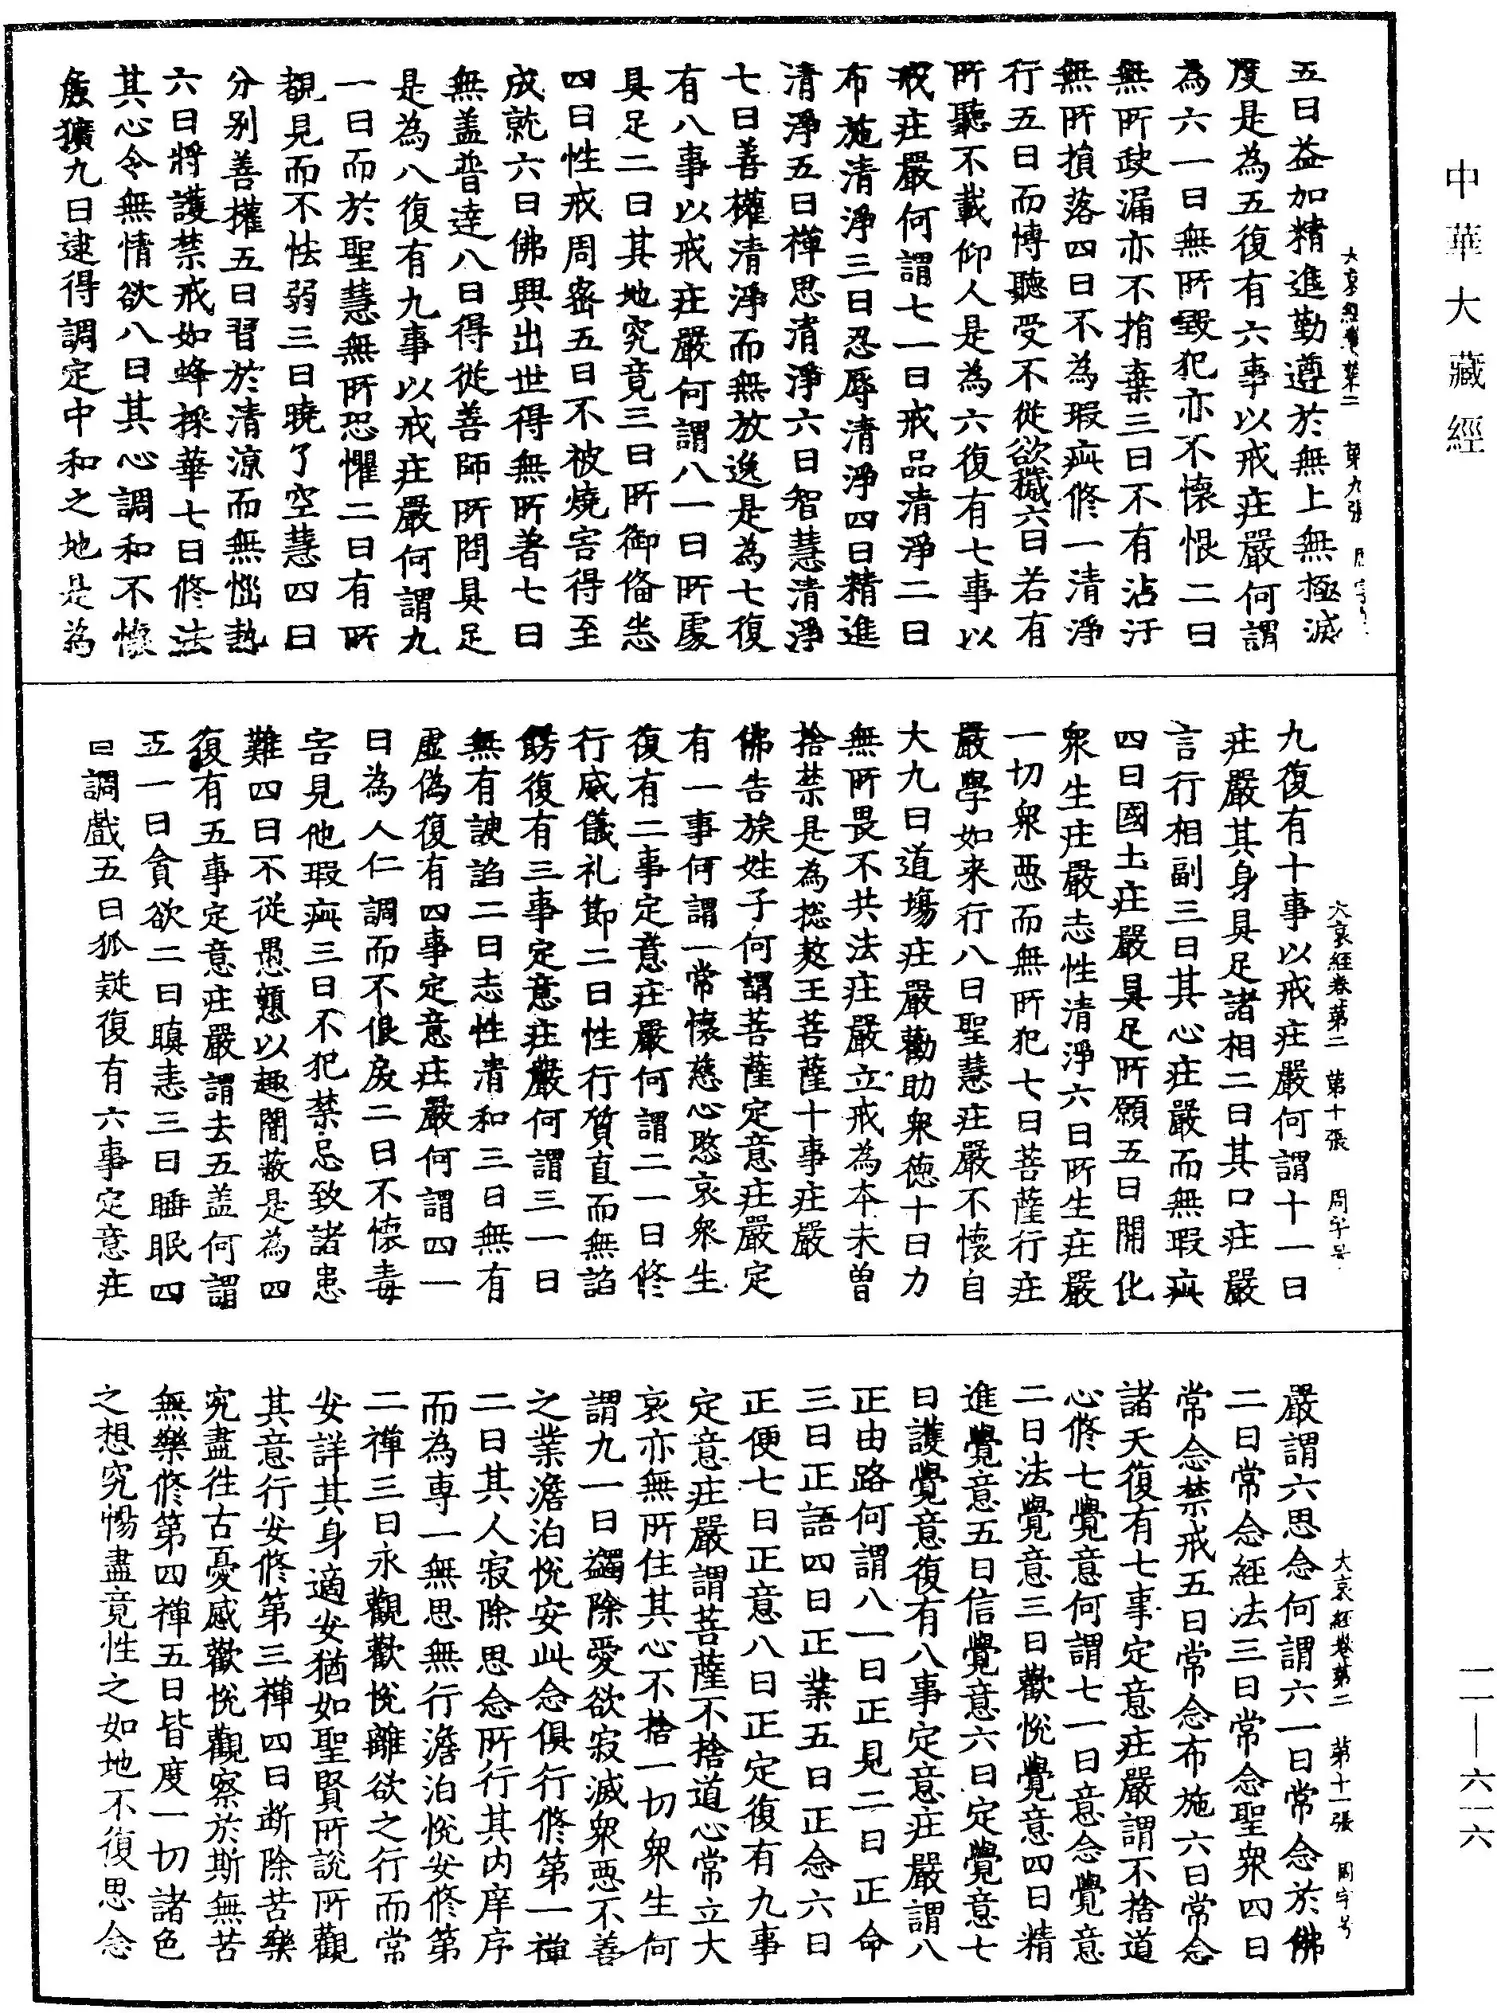 中華大藏經
大哀經卷第二 第九張 周字号
五曰益加精進勤遵於無上無極滅
度是為五復有六事以戒庄嚴何謂
為六一曰無所毀犯亦不懷恨二曰
無所𡙇漏亦不捐棄三曰不有沾汙
無所損落四曰不為瑕疵修一清淨
行五曰而博聽受不從欲穢六曰若有
所聽不載仰人是為六復有七事以
戒庄嚴何謂七一曰戒品清淨二曰
布施清淨三曰忍辱清淨四曰精進
清淨五曰禪思清淨六曰智慧清淨
七曰善權清淨而無放逸是為七復
有八事以戒庄嚴何謂八一曰所處
具足二曰其地究竟三曰所御俻悉
四曰性戒周密五曰不被燒害得至
成就六曰佛興出世得無所著七曰
無盖普達八曰得從善師所問具足
是為八復有九事以戒庄嚴何謂九
一曰而於聖慧無所恐懼二曰有所
覩見而不怯弱三曰曉了空慧四曰
分別善權五曰習於清涼而無惱熱
六曰將護禁戒如蜂採華七曰修法
其心令無情欲八曰其心調和不懷
麁獷九曰逮得調定中和之地是為
大哀經卷第二 第十張 周字号
九復有十事以戒庄嚴何謂十一曰
庄嚴其身具足諸相二曰其口庄嚴
言行相副三曰其心庄嚴而無瑕疵
四曰國土庄嚴具足所願五曰開化
眾生庄嚴志性清淨六曰所生庄嚴
一切眾惡而無所犯七曰菩薩行庄
嚴學如来行八曰聖慧庄嚴不懷自
大九曰道場庄嚴勸助眾德十曰力
無所畏不共法庄嚴立戒為本未曾
捨禁是為揔敖王菩薩十事庄嚴
佛告族姓子何謂菩薩定意庄嚴定
有一事何謂一常懷慈心愍哀眾生
復有二事定意庄嚴何謂二一曰修
行威儀礼節二曰性行質直而無諂
飾復有三事定意庄嚴何謂三一曰
無有諛諂二曰志性清和三曰無有
虛偽復有四事定意庄嚴何謂四一
曰為人仁調而不佷戾二曰不懷毒
害見他瑕疵三曰不犯禁忌致諸患
難四曰不從愚戇以趣闇蔽是為四
復有五事定意庄嚴謂去五盖何謂
五一曰貪欲二曰瞋恚三曰睡眠四
曰調戲五曰狐疑復有六事定意庄
大哀經卷第二 第十一張 周字号
嚴謂六思念何謂六一曰常念於佛
二曰常念經法三曰常念聖眾四曰
常念禁戒五曰常念布施六曰常念
諸天復有七事定意庄嚴謂不捨道
心修七覺意何謂七一曰意念覺意
二曰法覺意三曰歡悅覺意四曰精
進覺意五曰信覺意六曰定覺意七
曰護覺意復有八事定意庄嚴謂八
正由路何謂八一曰正見二曰正命
三曰正語四曰正業五曰正念六曰
正便七曰正意八曰正定復有九事
定意庄嚴謂菩薩不捨道心常立大
哀亦無所住其心不捨一切眾生何
謂九一曰蠲除愛欲寂滅眾惡不善
之業澹泊悅安此念俱行修第一禪
二曰其人寂除思念所行其內庠序
而為専一無思無行澹泊悅安修第
二禪三曰永觀歡悅離欲之行而常
安詳其身適安猶如聖賢所說所觀
其意行安修第三禪四曰断除苦樂
究盡往古憂感歡悅觀察於斯無苦
無樂修第四禪五曰皆度一切諸色
之想究暢盡竟性之如地不復思念
一一—六一六